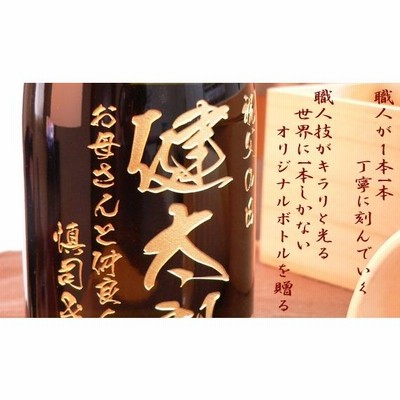 職人が1本一本
丁寧に刻んでいく
職人技がキラリと光る
世界に一本しかない
オリジナルボトルを贈る
健太郎
お母さんと仲良く
慎司